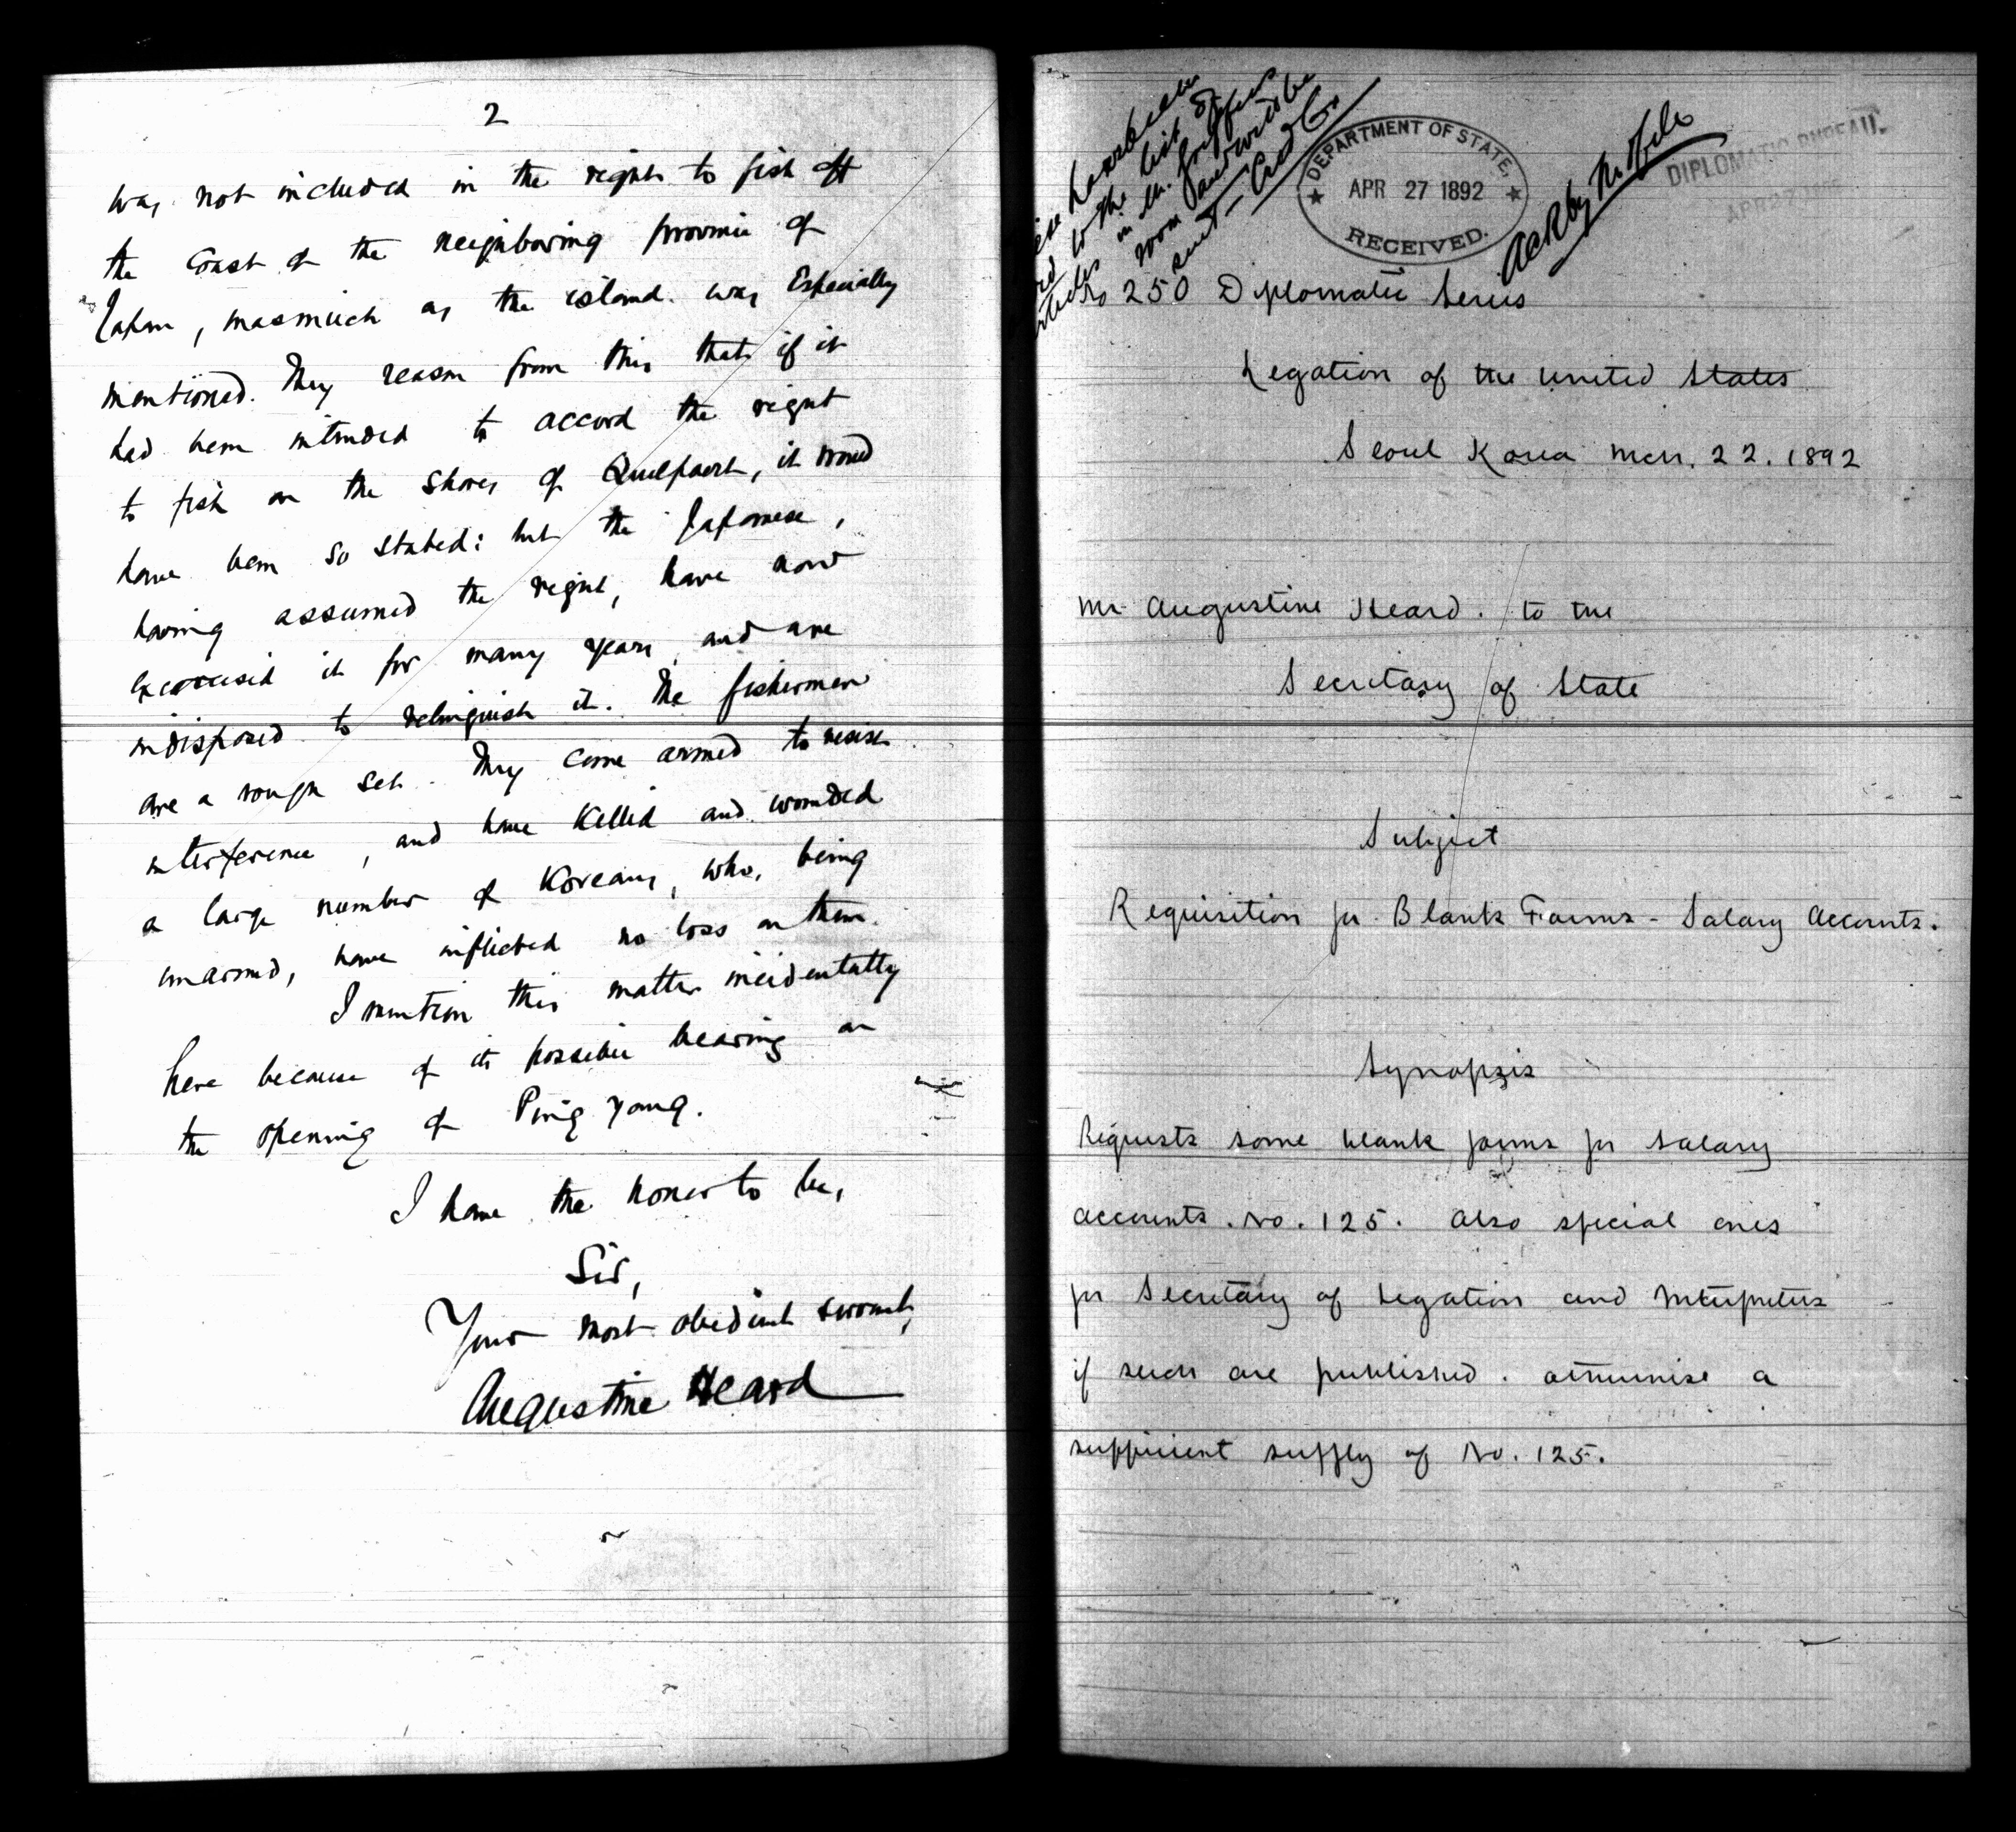 2
was not included in the right to fish off
the Coast of the neighboring province of
Japan, inasmuch as the island was Especially
mentioned. They reason from this that if it
had been intended to accord the right
to fish on the shores of Quelpaert, it would
have been so stated: but the Japanese,
having assumed the right, have now
exercised it for many years, and are
indisposed to relinquish it. The fishermen
are a rough set. They come armed to resist
interference, and have killed and wounded
a large number of Koreans, who, being
unarmed, have inflicted no loss on them.
I mention this matter incidentally
here because of its possible bearing on
the opening of Ping Yang.
I have the honor to be,
Sir,
Your most obedient servant,
Augustine Heard
to the list of
in Mr.
room and will be
sent
DEPARTMENT OF STATE.
APR 27 1892
RECEIVED.
Ack by
DIPLOMATIC BUREAU.
APR 27 1892
No 250 Diplomatic Series
Legation of the United States
Seoul Korea Mch. 22. 1892
Mr Augustine Heard. to the
Secretary of State
Subject
Requisition for Blank Forms - Salary Accounts.
Synopsis
Requests some blank forms for salary
accounts. No. 125. Also special ones
for Secretary of Legation and Interpreters
if such are published. otherwise a
sufficient supply of No. 125.